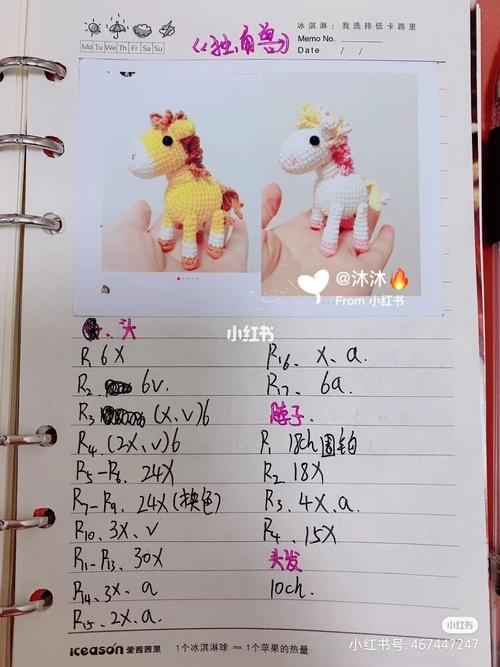 冰淇淋：我选择低卡路里
Mo Tu We Th Fr Sa Su
Memo No.
Date / /
《独角兽》
@沐沐🔥
From 小红书
小红书
一、头
R1 6X
R2. 6V.
R3 (X,V)6
R4. (2X,V)6
R5-R6. 24X
R7-R9. 24X(换色)
R10. 3X,V
R11-R13. 30X
R14. 3X,A
R15. 2X,A.
R16. X,A.
R17. 6A.
脖子.
R1 18ch 圈钩
R2 18X
R3. 4X,A.
R4. 15X
头发
10ch.
iceason 爱茜茜里
1个冰淇淋球 ≈ 1个苹果的热量
小红书
小红书号: 467447247